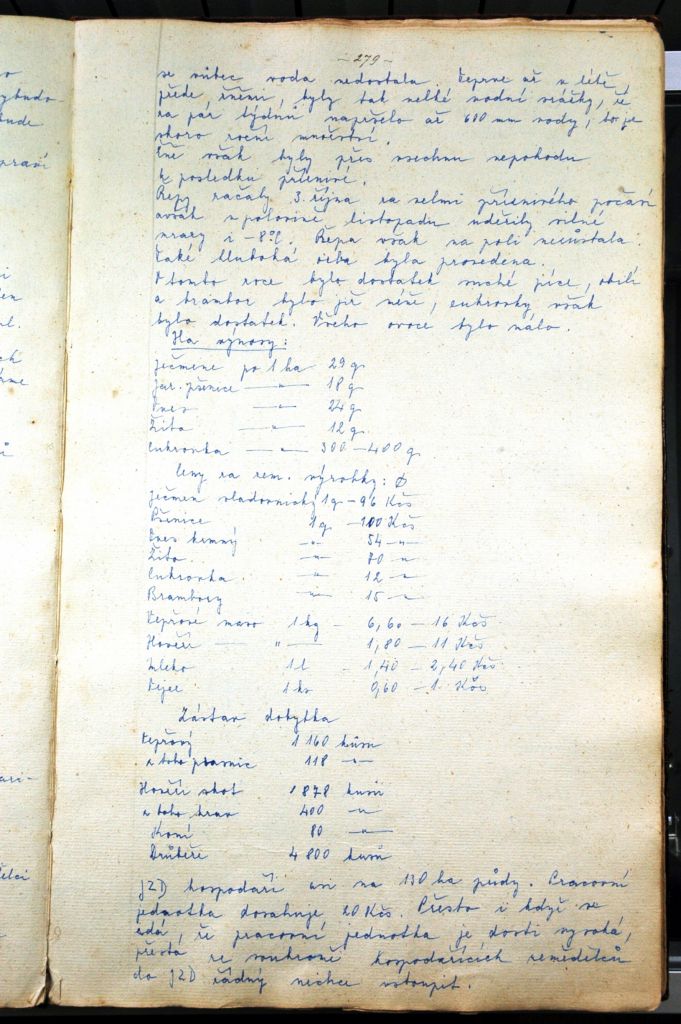 - 279 -
se vůbec voda nedostala. Teprve až v létě,
přede žněmi, byly tak velké vodní srážky, že
za pár týdnů napršelo až 600 mm vody, to je
skoro roční množství.
Žně však byly přes všechnu nepohodu
k posledku příznivé.
Řepy začaly 3. října za velmi příznivého počasí
avšak v polovině listopadu udeřily silné
mrazy i -8°C. Řepa však na poli nezůstala.
Také hluboká orba byla provedena.
V tomto roce bylo dostatek suché píce, obilí
a brambor bylo již méně, cukrovky však
bylo dostatek. Všeho ovoce bylo málo.
Ha výnosy:
Ječmene po 1 ha 29 q
Jar. pšenice — " — 18 q
Oves — " — 24 q
Žita — " — 12 q.
Cukrovka — " — 300 - 400 q
Ceny za zem. výrobky: Ø
Ječmen sladovnický 1 q - 96 Kčs
Pšenice 1 q - 100 Kčs
Oves krmný — " — 54 — " —
Žito — " — 70 — " —
Cukrovka — " — 12 — " —
Brambory — " — 15 — " —
Vepřové maso 1 kg - 6,60 - 16 Kčs
Hovězí — " — 1,80 - 11 Kčs
Mléko 1 l - 1,40 - 2,40 Kčs
Vejce 1 ks 0,60 - 1 Kčs
Zástav dobytka
Vepřový 1 160 kusů
z toho prasnic 118 — " —
Hovězí skot 1 878 kusů
z toho krav 400 — " —
Koní 80 — " —
Drůbeže 4 800 kusů
JZD hospodaří asi na 130 ha půdy. Pracovní
jednotka dosahuje 20 Kčs. Přesto i když se
zdá, že pracovní jednotka je dosti vysoká,
přestá ze soukromě hospodařících zemědělců
do JZD žádný nechce vstoupit.